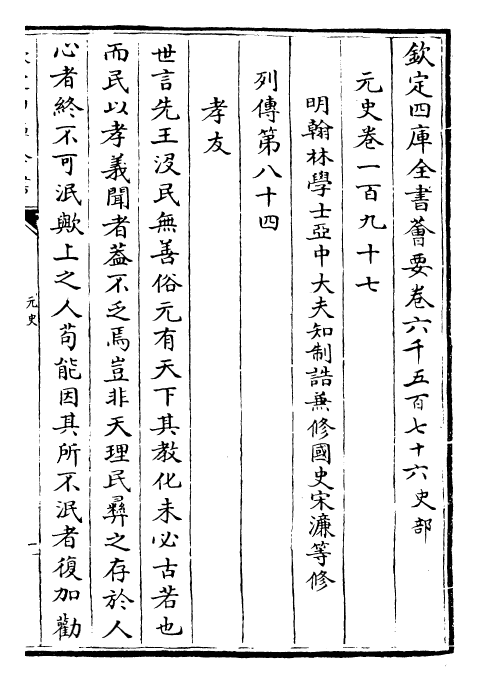 欽定四庫全書薈要卷六千五百七十六史部
元史卷一百九十七
明翰林學士亞中大夫知制誥兼修國史宋濂等修
列傳第八十四
孝友
世言先王沒民無善俗元有天下其教化未必古若也
而民以孝義聞者葢不乏焉豈非天理民彝之存於人
心者終不可泯歟上之人茍能因其所不泯者復加勸
元史